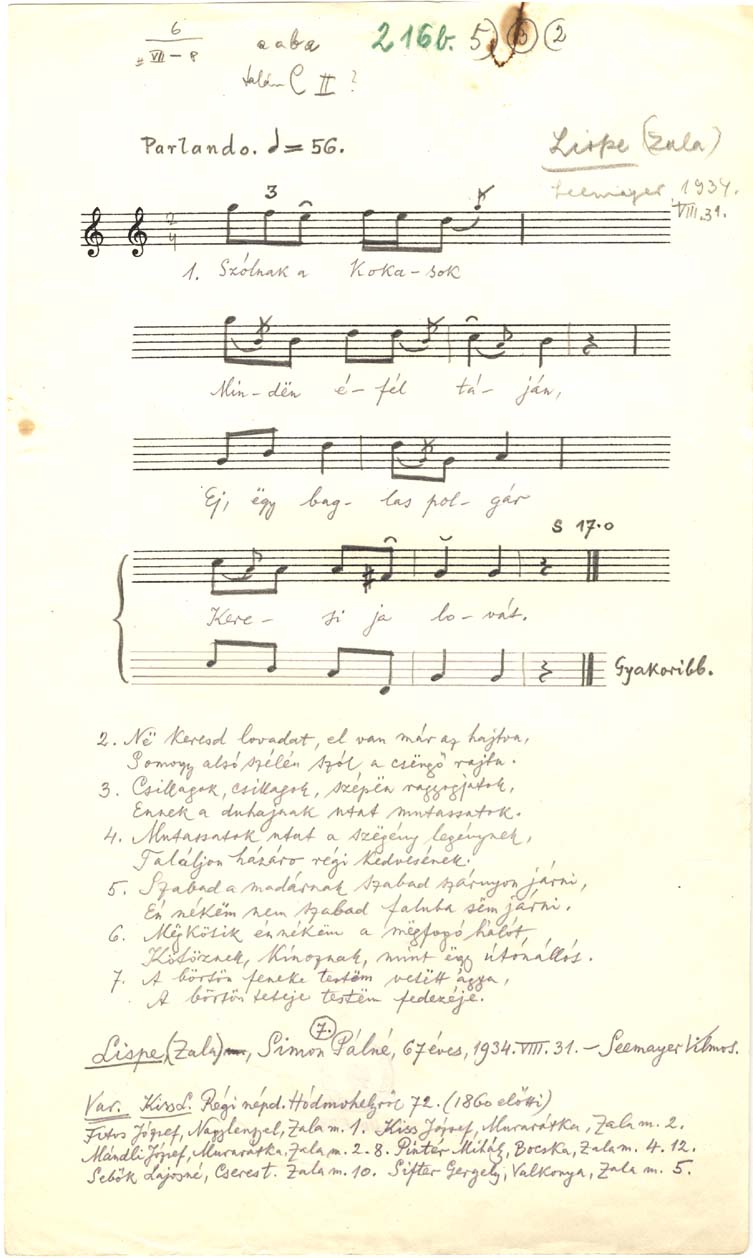 6
VII – 8
a a b a
216b. 5) 3 2
talán C II ?
Parlando. = 56.
Lispe (Zala)
Seemayer 1934.
VIII.31.
3
2
4
1. Szólnak a Koka-sok
Min-dën é-fél tá-ján,
Ej, ëgy bag-las pol-gár
S 17.0
Kere-si ja lo-vát.
Gyakoribb.
2. Në keresd lovadat, el van már az hajtva,
Somogy alsó szélén szól a csëngő rajta.
3. Csillagok, csillagok, szépën ragyogjatok,
Ennek a duhajnak utat mutassatok.
4. Mutassatok utat a szëgény legénynek,
Találjon házáro régi kedvesének.
5. Szabad a madárnak szabad szárnyon járni,
Én nékëm nem szabad faluba sëm járni.
6. Mëgkötik énnékëm a mëgfogó hálót,
Kötöznek, kínoznak, mint ëgy útónállós.
7. A börtön feneke testëm vetëtt ágya,
A börtön teteje testëm fedezéje.
7.
Lispe, (Zala), Simon Pálné, 67 éves, 1934. VIII. 31. – Seemayer Vilmos.
Var. Kiss L. Régi népd. Hódmvhelyről 72. (1860 előtti)
József, Nagylengyel, Zala m. 1. Kiss József, Murarátka, Zala m. 2.
Mándli József, Murarátka, Zala m. 2. 8. Pintér Mihály, Bocska, Zala m. 4. 12.
Sebők Lajosné, Cserest. Zala m. 10. Sifter Gergely, Valkonya, Zala m. 5.